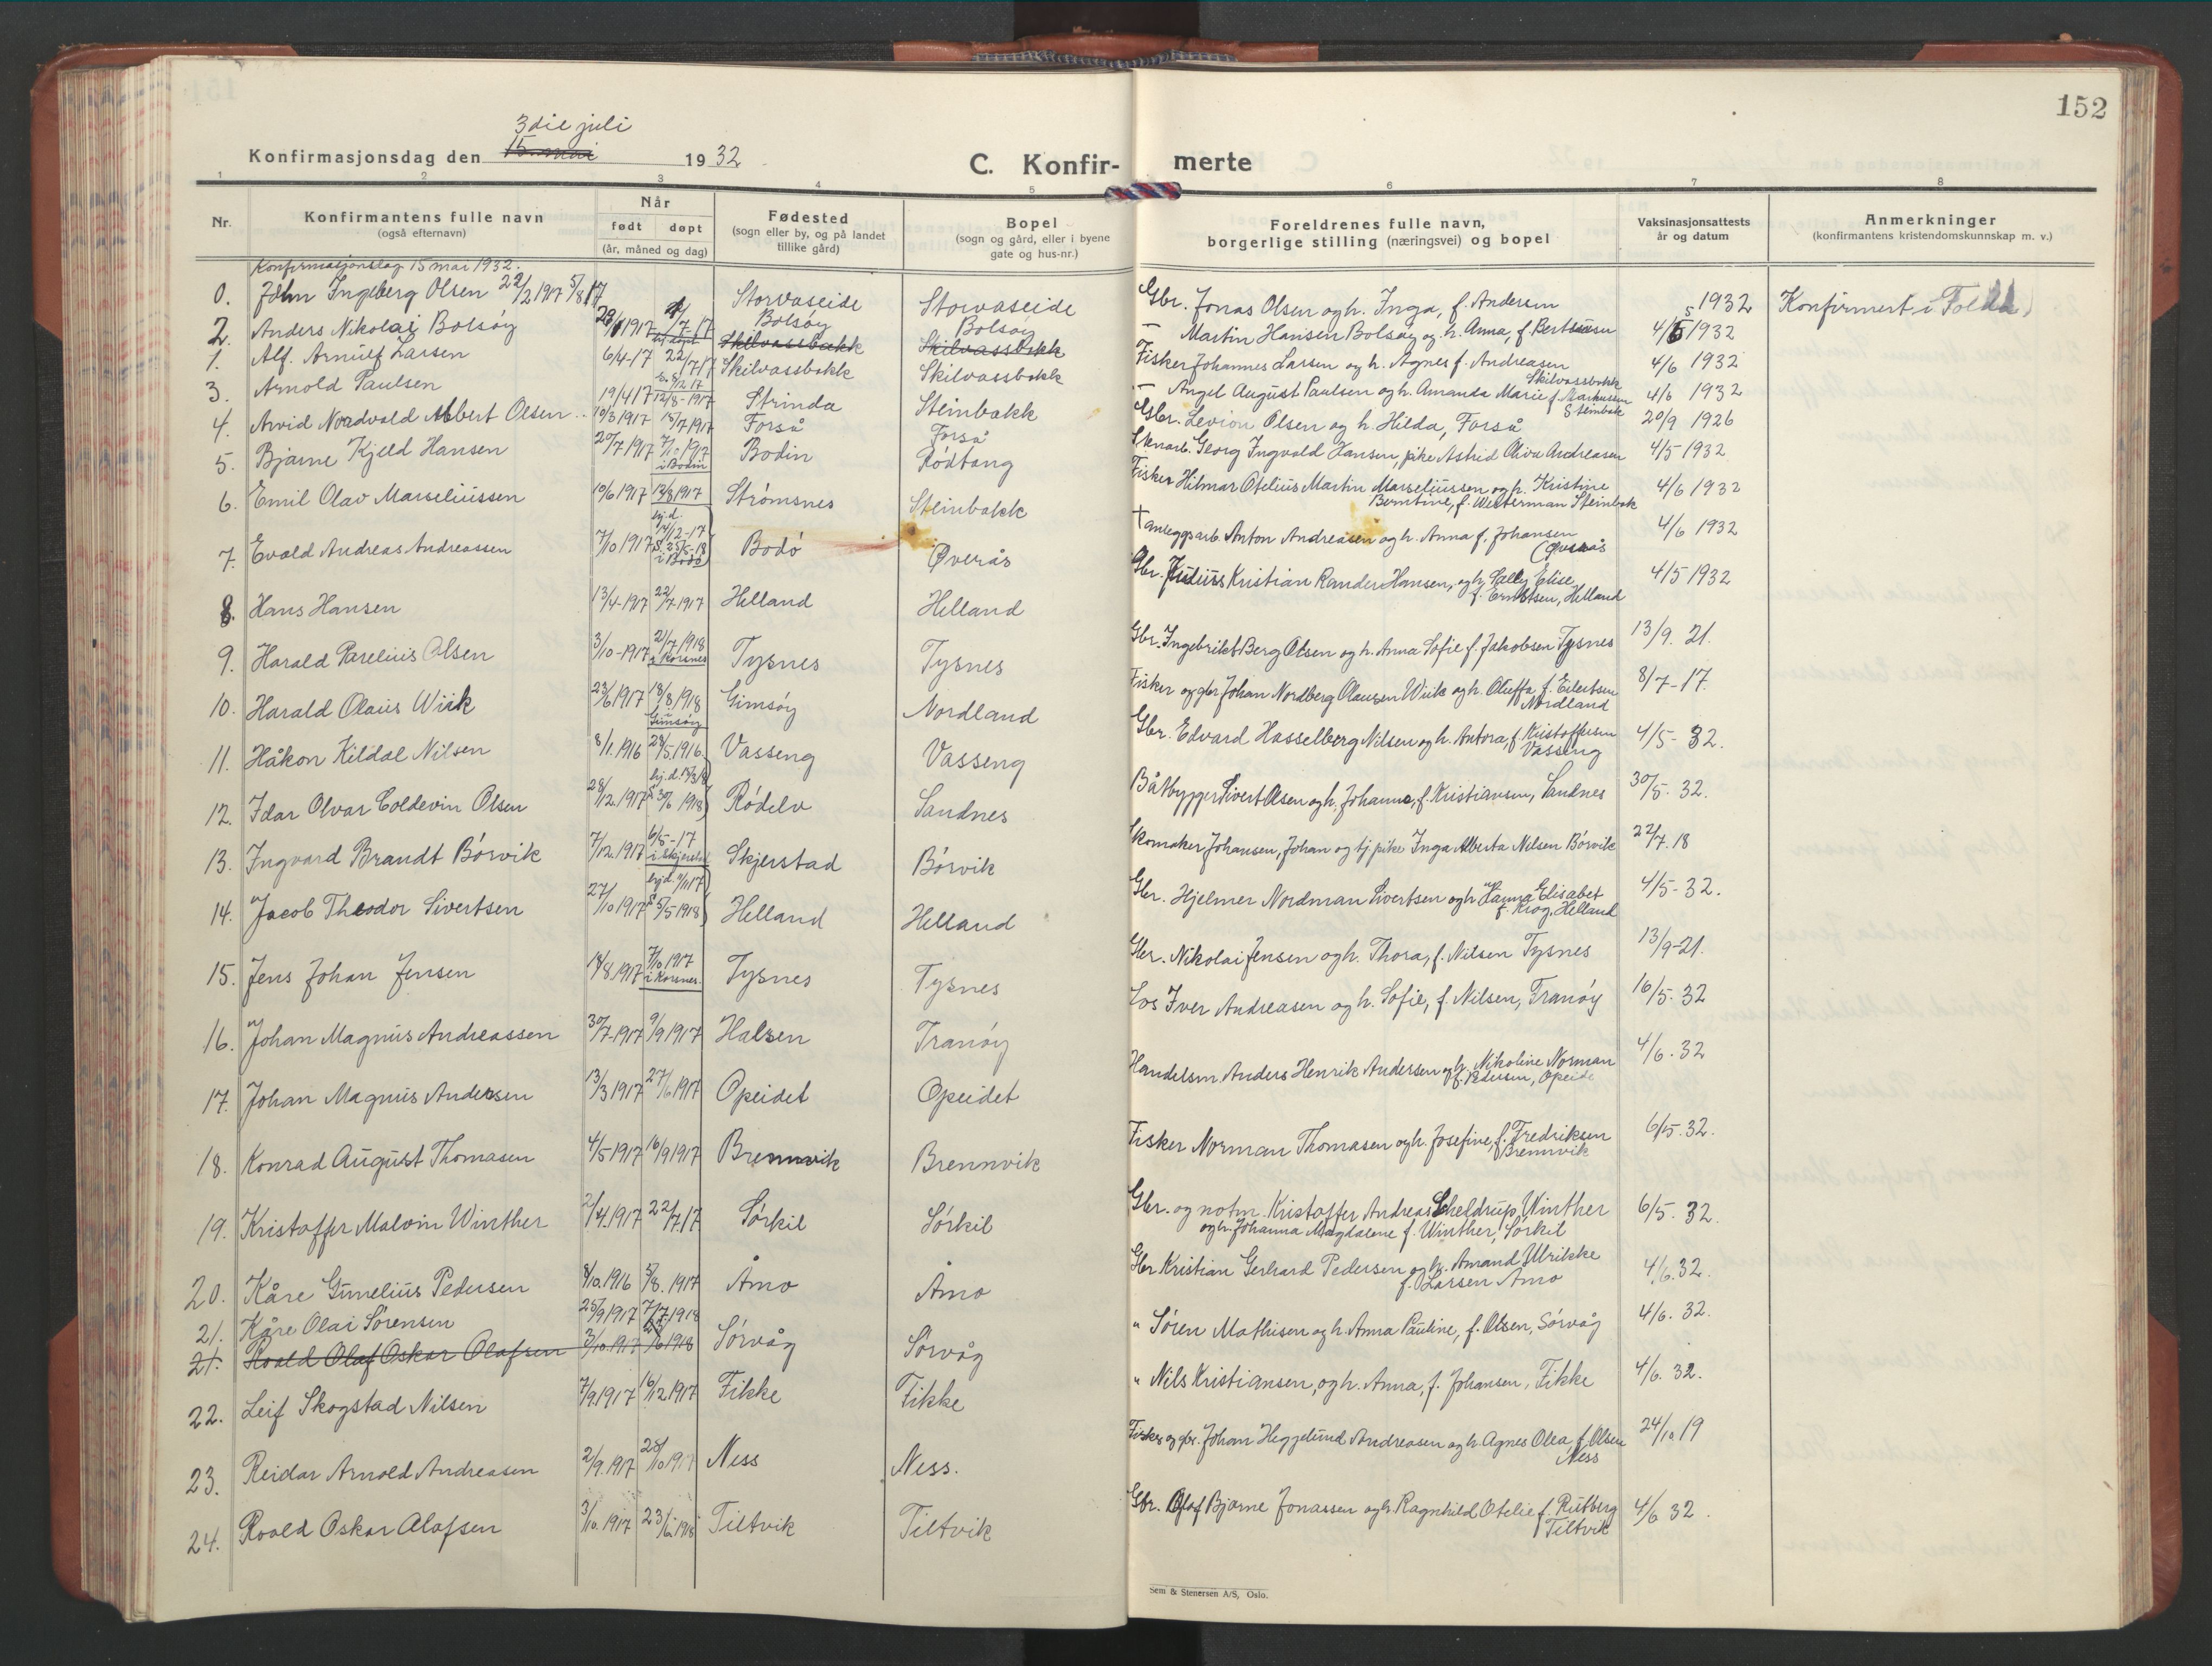 152
3die juli
Konfirmasjonsdag den 15. mai 1932
C. Konfir- merte
1 2 3 4 5 6 7 8
Nr. Konfirmantens fulle navn (også efternavn) Når født døpt (år, måned og dag) Fødested (sogn eller by, og på landet tillike gård) Bopel (sogn og gård, eller i byene gate og hus-nr.) Foreldrenes fulle navn, borgerlige stilling (næringsvei) og bopel Vaksinasjonsattests år og datum Anmerkninger (konfirmantens kristendomskunnskap m. v.)
Konfirmasjonsdag 15 mai 1932.
0. John Ingeberg Olsen 22/2 1917 5/8 17 Storvaseide Storvaseide Gbr. Jonas Olsen og h. Inga, f. Andersen 1932 Konfirmert i Folda
2. Anders Nikolai Bolsøy 1917 Bolsøy Bolsøy — Martin Hansen Bolsøy og h. Anna, f. Bertsen 1932
Skilvassbakk Skilvassbakk
1. Alf. Arnulf Larsen 6/4-17 22/7 17 Skilvassbakk Skilvassbakk Fisker Johannes Larsen og h. Agnes f. Andreasen Skilvassbakk 4/6 1932
3. Arnold Paulsen 19/4 17 12/8-1917 Strinda Steinbakk — Angel August Paulsen og h. Amanda Marie f. Markussen Steinbak 4/6 1932
4. Arvid Nordvald Albert Olsen 10/3 1917 15/7 1917 Forså Forså Gbr. Levion Olsen og h. Hilda, Forså 20/9 1926
5. Bjarne Kjeld Hansen 20/7 1917 7/10 1917 i Bodin Bodin Rødtang Georg Ingvald Hansen, pike Astrid Oliva Andreasen 4/5 1932
6. Emil Olav Marseliussen 10/6 1917 12/8 1917 Strømsnes Steinbakk Fisker Hilmar Otelius Martin Marseliussen og h. Kristine Berntine, f. Westerman Steinbak 4/6 1932
7. Evald Andreas Andreassen 7/10 1917 hj.d. 14/12-17 S. 25/5-18 i Bodø Bodø Øverås † anleggsarb. Anton Andreasen og h. Anna f. Johansen Øverås 4/6 1932
8. Hans Hansen 13/4-1917 22/7-1917 Helland Helland Gbr. Julius Kristian Rander Hansen, og h. Cally Elise, f. Erntsen, Helland 4/5 1932
9. Harald Parelius Olsen 3/10-1917 21/7 1918 i Korsnes Tysnes Tysnes Gbr. Ingebrikt Berg Olsen og h. Anna Sofie f. Jakobsen Tysnes 13/9. 21.
10. Harald Olaus Wiik 23/6 1917 18/8. 1918 Gimsøy Gimsøy Nordland Fisker og gbr Johan Nordberg Olausen Wiik og h. Oluffa f. Eilertsen Nordland 8/7-17.
11. Håkon Kildal Nilsen 8/11. 1916 28/5. 1916. Vasseng Vasseng Gbr. Edvard Hasselberg Nilsen og h. Antora, f. Kristoffersen Vasseng 4/5- 32.
12. Idar Olvar Coldevin Olsen 28/12. 1917 hj.d. S 30/6 1918 Rødelv Sandnes Båtbygger Sivert Olsen og h. Johanne, f. Kristiansen, Sandnes 30/5. 32.
13. Ingvard Brandt Børvik 7/12. 1917 6/5-17 i Skjerstad Skjerstad Børvik Skomaker Johansen, Johan og tj.pike Inga Alberta Nilsen Børvik 22/7. 18
14. Jacob Theodor Sivertsen 27/10 1917 hj.d. 9/11 17 S 5/5 1918 Helland Helland Gbr. Hjelmer Nordman Sivertsen og h. Hanna Elisabet f. Krog, Helland 4/5-32.
15. Jens Johan Jensen 14/8. 1917 7/10. 1917 i Korsnes. Tysnes Tysnes Gbr. Nikolai Jensen og h. Thora, f. Nilsen Tysnes 13/9-21.
16. Johan Magnus Andreassen 30/7-1917 9/9 1917 Halsen Tranøy Los Iver Andreasen og h. Sofie, f. Nilsen, Tranøy 16/5. 32
17. Johan Magnus Andersen 13/3 1917 27/6 1917 Opeidet Opeidet Handelsm. Anders Henrik Andersen og h. Nikoline Norman f. Pedersen, Opeide 4/6. 32
18. Konrad August Thomasen 4/5 1917 16/9 1917 Brennvik Brennvik Fisker Norman Thomasen og h. Josefine, f. Fredriksen Brennvik 6/5. 32.
19. Kristoffer Malvin Winther 2/4. 1917 22/7. 17 Sørkil Sørkil Gbr. og notm. Kristoffer Andreas Scheldrup Winther og h. Johanna Magdalene f. Winther, Sørkil 6/5. 32.
20. Kåre Gunelius Pedersen 8/10. 1916 5/8. 1917 Åmo Åmo Gbr Kristian Gerhard Pedersen og h. Amand Ulrikke f. Larsen Amo 4/6. 32.
21. Kåre Olai Sørensen 25/9 1917 7/7 1918 Sørvåg Sørvåg " Søren Mathisen og h. Anna Pauline, f. Olsen, Sørvåg 4/6. 32.
21. Roald Olaf Oskar Olafsen 3/10. 1917 23/6 1918
22. Leif Skogstad Nilsen 7/9. 1917 16/12 1917 Fikke Fikke " Nils Kristiansen, og h. Anna, f. Johansen, Fikke 4/6. 32.
23. Reidar Arnold Andreasen 2/9. 1917 28/10 1917 Ness Ness. Fisker og gbr. Johan Heggelund Andreasen og h. Agnes Olea, f. Olsen Ness 24/10 19
24. Roald Oskar Olafsen 3/10. 1917 23/6. 1918 Tiltvik Tiltvik Gbr. Olaf Bjarne Jonassen og h. Ragnhild Otelie f. Rutberg Tiltvik 4/6 32.
Sem & Stenersen A/S, Oslo.